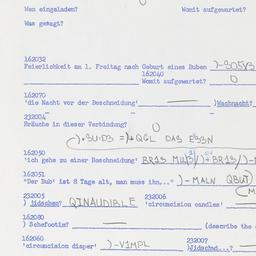 Wen eingeladen? Womit aufgewartet?
Was gesagt?
162032
Feierlichkeit am 1. Freitag nach Geburt eines Buben )-30583
162040
Womit aufgewartet? 0
162070
'die Nacht vor der Beschneidung' )Wachnacht?
232004
Bräuche in dieser Verbindung? 0
DAS ESSN
162050
'ich gehe zu einer Beschneidung' BR1S
162051
"Der Bub' ist 8 Tage alt, man muss ihn..." )-MALN
232005 232006
) Jidschen? QINAUDIBLE 'circumcision candles'
162080
) Schefoetim? (describe the
162060 232007
'circumcision diaper' )-V1MPL )Jüdsched...?